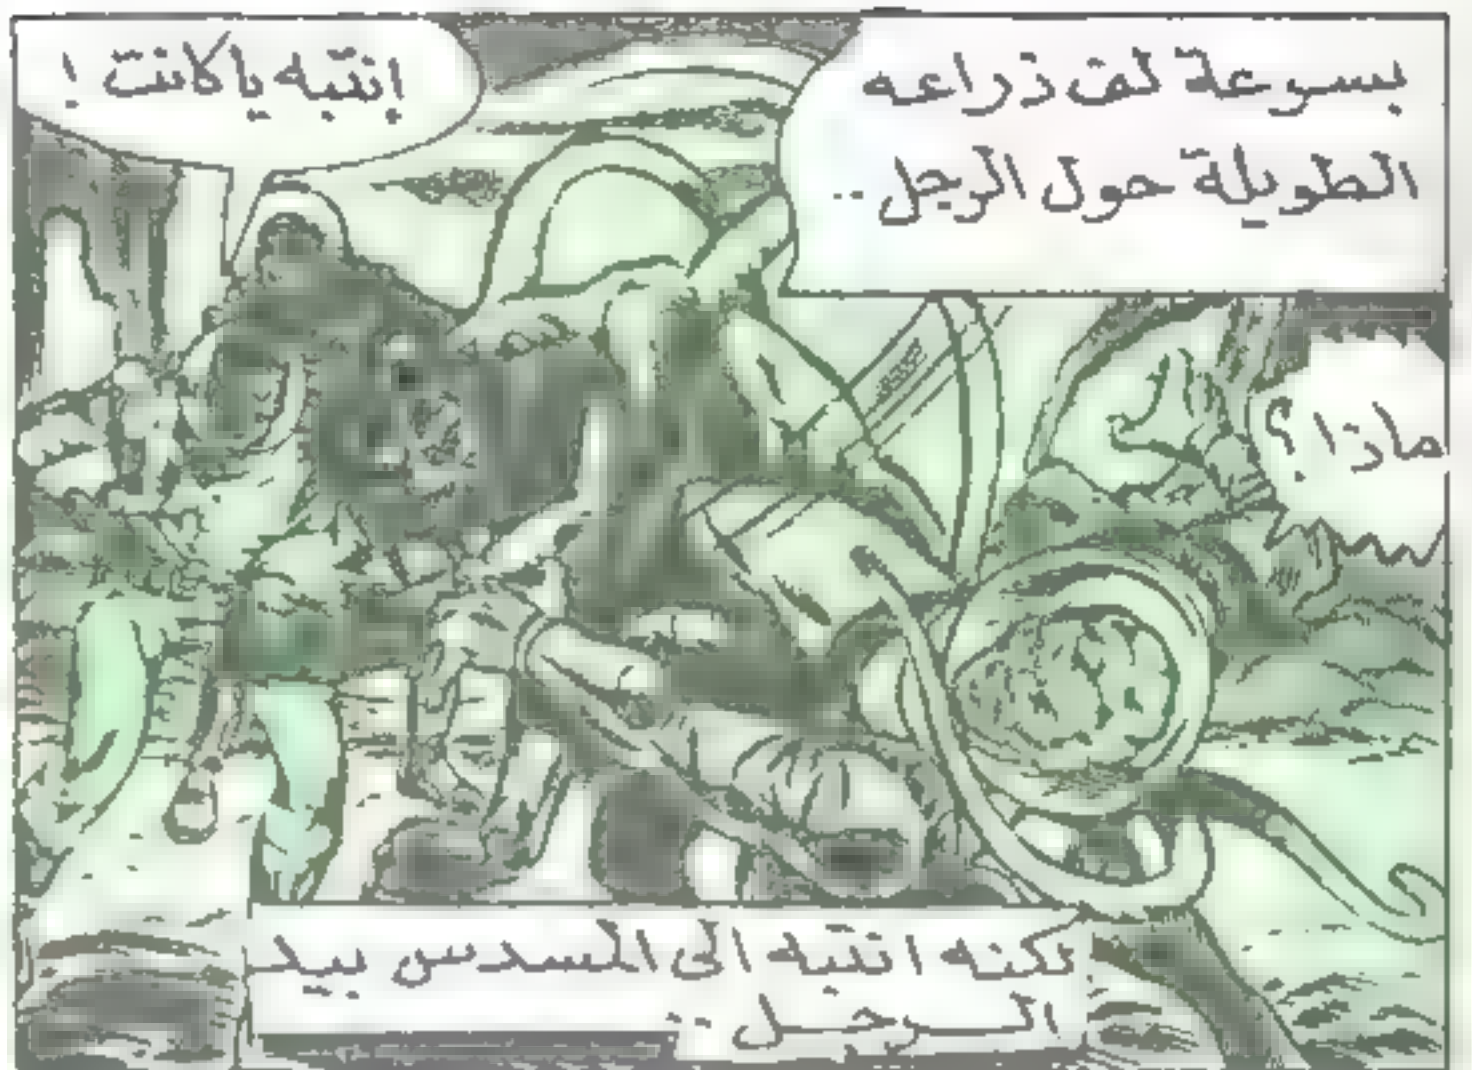 بسرعة لف ذراعه
الطويلة حول الرجل..
إنتبه يا كانت !
ماذا ؟
لكنه انتبه الى المسدس بيد
الرجل..